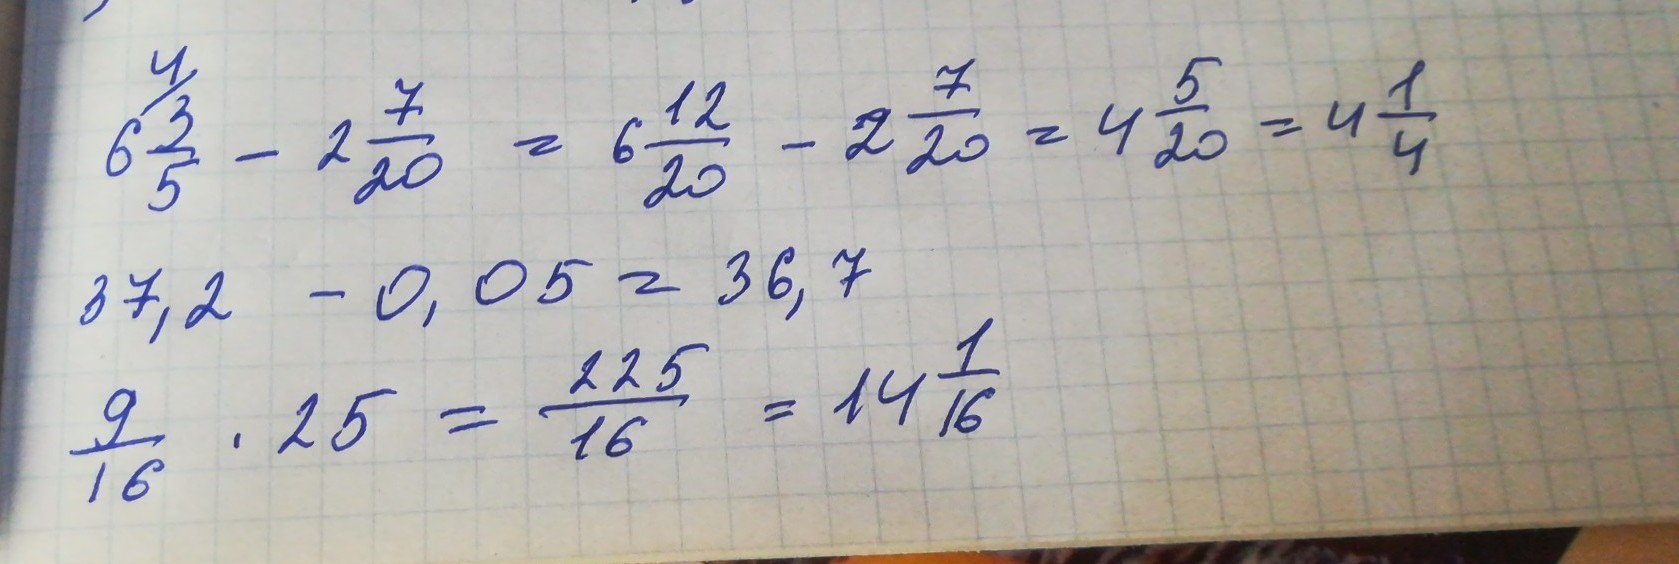 6 3/5 4/ - 2 7/20 = 6 12/20 - 2 7/20 = 4 5/20 = 4 1/4
37,2 - 0,05 = 36,7
9/16 · 25 = 225/16 = 14 1/16